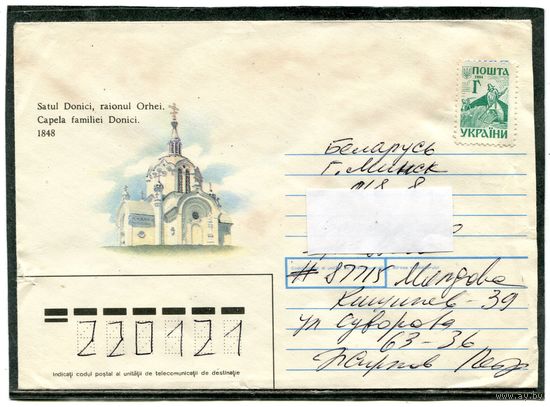 Satul Donici, raionul Orhei.
Capela familiei Donici.
1848
ПОШТА
1994
Г
УКРАЇНИ
Беларусь
г. Минск
# 87715 Молдова
Кишинев - 39
ул Суворова
63-36
220121
Indicați codul poștal al unității de telecomunicații de destinație
www.ay.by